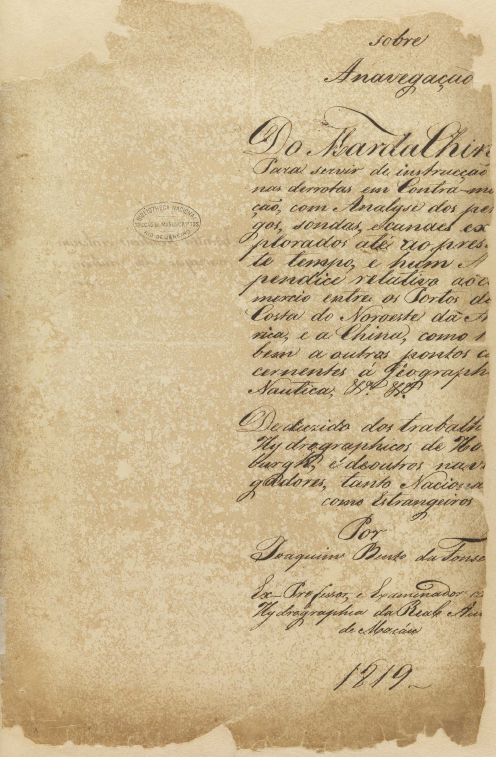 sobre
Anavegação
Do Mar da Chin
Para servir de instrucção
nas derrotas em Contra-mo
ção, com Analyse dos per
gos, sondas, e canaes ex
plorados até ao pres
te tempo, e hum A
pendice relativo ao co
mercio entre os Portos da
Costa do Noroeste da A
rica, e a China, como t
bem a outros pontos co
cernentes á Geograph
Nautica, &ª. &ª.
Deduzido dos trabalh
Hydrographicos de Ho
burgh, e de outros nave
gadores, tanto Naciona
como Estrangeiros
Por
Joaquim Bento da Fonse
Ex-Professor, e Examinador
Hydrographia da Real
de Macáu
1819
BIBLIOTHECA NACIONAL
SECÇÃO DE MANUSCRIPTOS
RIO DE JANEIRO